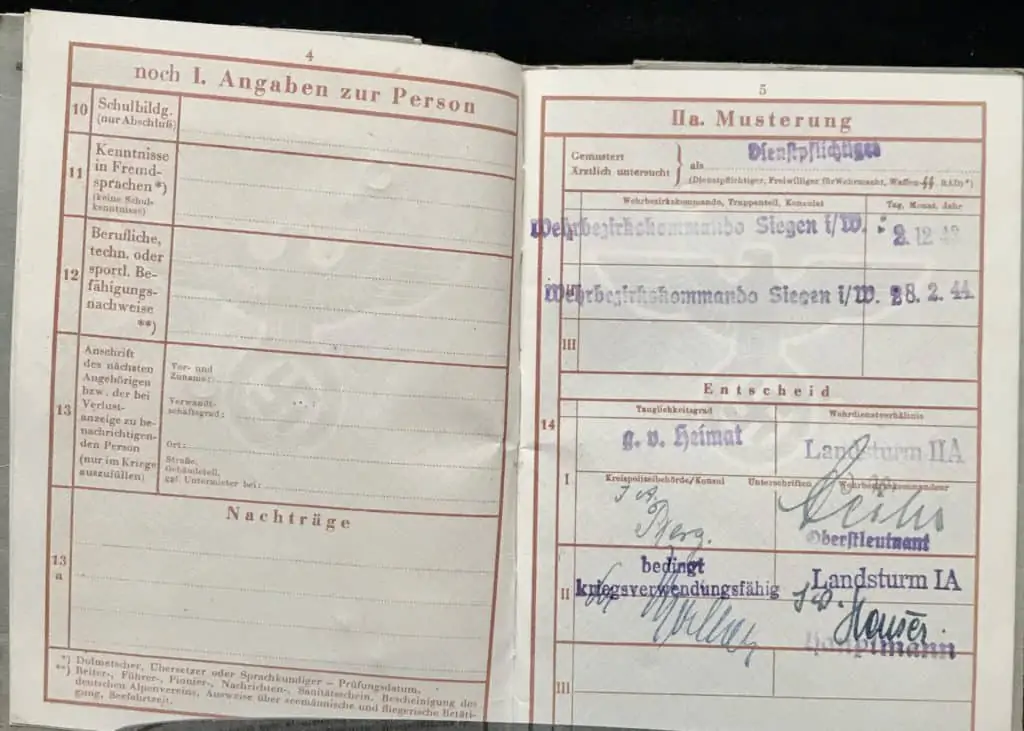 4
noch I. Angaben zur Person
10
Schulbildg.
(nur Abschluß)
11
Kenntnisse
in Fremd-
sprachen *)
(keine Schul-
kenntnisse)
12
Berufliche,
techn. oder
sportl. Be-
fähigungs-
nachweise
**)
13
Anschrift
des nächsten
Angehörigen
bzw. der bei
Verlust-
anzeige zu be-
nachrichtigen-
den Person
(nur im Kriege
auszufüllen)
Vor- und
Zuname:
Verwandt-
schaftsgrad:
Ort:
Straße,
Gebäudeteil,
ggf. Untermieter bei:
13
a
Nachträge
*) Dolmetscher, Übersetzer oder Sprachkundiger – Prüfungsdatum.
**) Reiter-, Führer-, Pionier-, Nachrichten-, Sanitätsschein, Bescheinigung des
deutschen Alpenvereins, Ausweise über seemännische und fliegerische Betäti-
gung, Seefahrtzeit.
5
IIa. Musterung
Gemustert
Ärztlich untersucht
als
Dienstpflichtiger
(Dienstpflichtiger, Freiwilliger für Wehrmacht, Waffen-SS R.A.D.*)
Wehrbezirkskommando, Truppenteil, Konsulat
Tag, Monat, Jahr
Wehrbezirkskommando Siegen i/W.
2.12.43
Wehrbezirkskommando Siegen i/W. 28.2.44.
III
Entscheid
14
Tauglichkeitsgrad
Wehrdienstverhältnis
I
g. v. Heimat
Landsturm II A
Kreispolizeibehörde/Konsul
Unterschriften
Wehrbezirkskommandeur
Oberstleutnant
II
bedingt
kriegsverwendungsfähig
Landsturm I A
Hauptmann
III